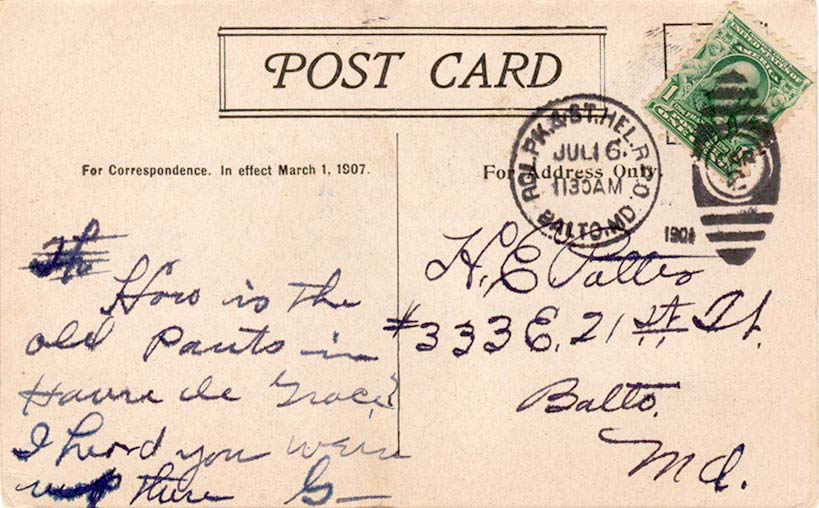 POST CARD
For Correspondence. In effect March 1, 1907.
For Address Only.
UNITED STATES OF AMERICA
1
ONE
ROL.PK.&ST.HEL.R.P.O.
JUL 16
1130AM
BALTO.MD.
1908
How is the
old Pants in
Havre de Grace?
I heard you were
up there G—
H. E.
#333 E. 21 st St.
Balto.
Md.